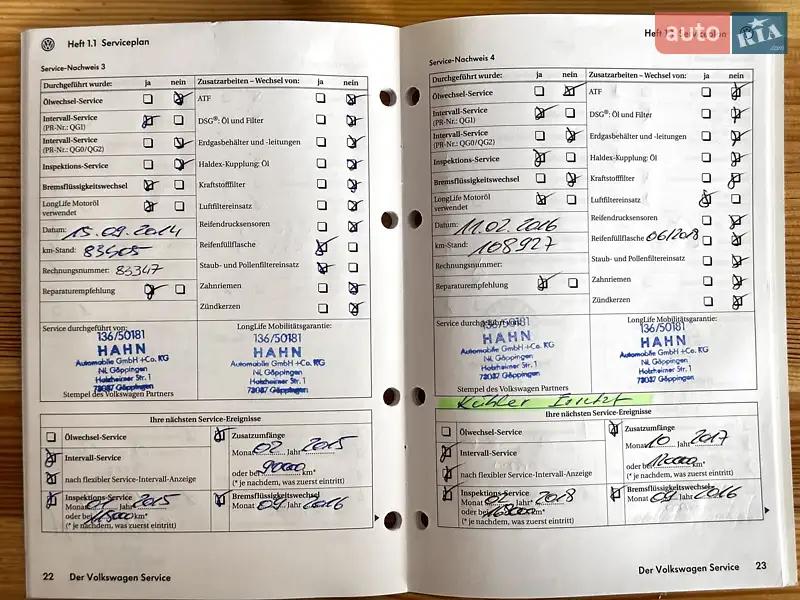 Heft 1.1 Serviceplan
Service-Nachweis 3
Durchgeführt wurde: ja nein
Ölwechsel-Service
Intervall-Service
(PR-Nr.: QG1)
Intervall-Service
(PR-Nr.: QG0/QG2)
Inspektions-Service
Bremsflüssigkeitswechsel
LongLife Motoröl
verwendet
Datum: 15.09.2014
km-Stand: 83405
Rechnungsnummer: 83347
Reparaturempfehlung
Zusatzarbeiten – Wechsel von: ja nein
ATF
DSG®: Öl und Filter
Erdgasbehälter und -leitungen
Haldex-Kupplung: Öl
Kraftstofffilter
Luftfiltereinsatz
Reifendrucksensoren
Reifenfüllflasche
Staub- und Pollenfiltereinsatz
Zahnriemen
Zündkerzen
Service durchgeführt von:
136/50181
HAHN
Automobile GmbH + Co. KG
NL Göppingen
Holzheimer Str. 1
73037 Göppingen
Stempel des Volkswagen Partners
LongLife Mobilitätsgarantie:
136/50181
HAHN
Automobile GmbH + Co. KG
NL Göppingen
Holzheimer Str. 1
73037 Göppingen
Ihre nächsten Service-Ereignisse
Ölwechsel-Service
Intervall-Service
nach flexibler Service-Intervall-Anzeige
Inspektions-Service
Monat Jahr 2015
oder bei 115000 km*
(* je nachdem, was zuerst eintritt)
Zusatzumfänge
Monat 02 Jahr 2015
oder bei 90000 km*
(* je nachdem, was zuerst eintritt)
Bremsflüssigkeitswechsel
Monat 09 Jahr 2016
22 Der Volkswagen Service
Heft Serviceplan
auto RIA .com
Service-Nachweis 4
Durchgeführt wurde: ja nein
Ölwechsel-Service
Intervall-Service
(PR-Nr.: QG1)
Intervall-Service
(PR-Nr.: QG0/QG2)
Inspektions-Service
Bremsflüssigkeitswechsel
LongLife Motoröl
verwendet
Datum: 11.02.2016
km-Stand: 108927
Rechnungsnummer:
Reparaturempfehlung
Zusatzarbeiten – Wechsel von: ja nein
ATF
DSG®: Öl und Filter
Erdgasbehälter und -leitungen
Haldex-Kupplung: Öl
Kraftstofffilter
Luftfiltereinsatz
Reifendrucksensoren
Reifenfüllflasche 06/2018
Staub- und Pollenfiltereinsatz
Zahnriemen
Zündkerzen
Service durchgeführt von:
136/50181
HAHN
Automobile GmbH + Co. KG
NL Göppingen
Holzheimer Str. 1
73037 Göppingen
Stempel des Volkswagen Partners
LongLife Mobilitätsgarantie:
136/50181
HAHN
Automobile GmbH + Co. KG
NL Göppingen
Holzheimer Str. 1
73037 Göppingen
Kühler
Ihre nächsten Service-Ereignisse
Ölwechsel-Service
Intervall-Service
nach flexibler Service-Intervall-Anzeige
Inspektions-Service
Monat Jahr 2018
oder bei km*
(* je nachdem, was zuerst eintritt)
Zusatzumfänge
Monat 10 Jahr 2017
oder bei km*
(* je nachdem, was zuerst eintritt)
Bremsflüssigkeitswechsel
Monat 09 Jahr 2016
Der Volkswagen Service 23